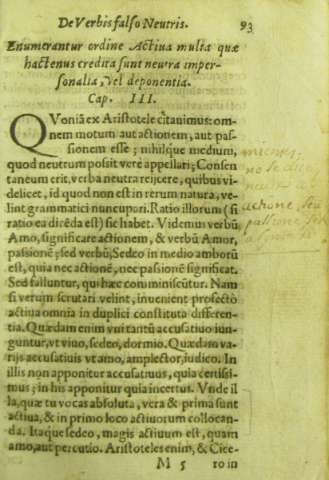 De Verbis falso Neutris. 93
Enumerantur ordine Actiua multa quæ
hactenus credita sunt neutra imper-
sonalia, vel deponentia.
Cap. III.
QVoniã ex Aristotele citauimus: om-
nem motum aut actionem, aut pas-
sionem esse; nihilque medium,
quod neutrum possit verè appellari; Consen
taneum erit, verba neutra reijcere, quibus vi-
delicet, id quod non est in rerum natura, ve-
lint grammatici nuncupori. Ratio illorum (si
ratio ea dicẽda est) sic habet. Videmus verbũ
Amo, significare actionem, & verbũ Amor,
passionẽ; sed verbũ, Sedeo in medio amborũ
est, quia nec actionẽ, nec passionẽ significat.
Sed falluntur, qui hæc comminiscũtur. Nam
si verum scrutari velint, inuenient profectò
actiua omnia in duplici constituta differen-
tia. Quædam enim vni tantũ accusatiuo iun-
guntur, vt viuo, sedeo, dormio. Quædam va-
rijs accusatiuis vt amo, amplector, iudico. In
illis non apponitur accusatiuus, quia certissi-
mus; in his apponitur quia incertus. Vnde il
la, quæ tu vocas absoluta, vera & prima sunt
actiua, & in primo loco actiuorum collocan-
da. Itaque sedeo, magis actiuum est, quam
amo, aut percutio. Aristoteles enim, & Cice-
M 5 ro in
actione, seu
passione